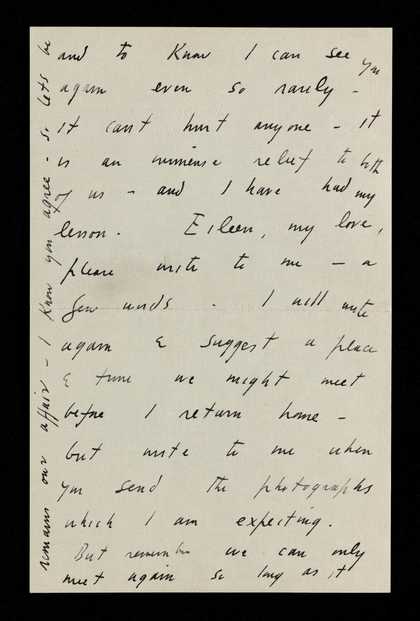 and to know I can see you
again even so rarely –
it can't hurt anyone – it
is an immense relief to both
of us – and I have had my
lesson. Eileen, my love,
please write to me – a
few words. I will write
again & suggest a place
& time we might meet
before I return home –
but write to me when
you send the photographs
which I am expecting.
But remember we can only
meet again so long as it
remains our affair – I know you agree – so let's be